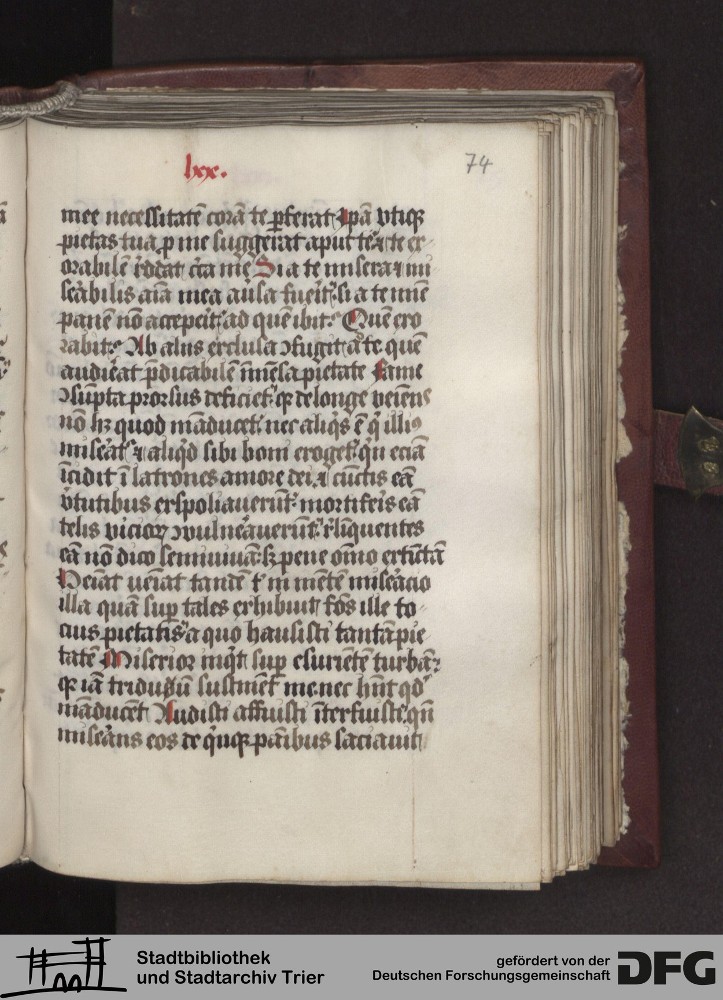 lxx.
74
mee necessitatē corā te ꝓferat Ipā vtiqꝫ
pietas tua ꝓ me suggerat aput te ⁊ te ex
orabilē r̄ddat c̄ca me Si a te misera ⁊ mi
sēabilis aīa mea aūsa fueit: si a te nīne
panē nō accepeit: ad quē ibit: Quē ero
rabit: Ab aliis exclusa ↄfugit a te quē
audiēat p̄dicabilē īmēsa pietate Fame
ↄsūpta prorsus deficiet: qꝫ de longe veiens
nō hꝫ quod māducet: nec aliq̄s ē q̄ illiꝰ
miseāt ⁊ aliq̄d sibi boni eroget: q̄n eciā
īcidit ī latrones amore dei ⁊ cūctis eā
v̄tutibus exspoliauerūt: mortifeis eā
telis vicioꝝ ↄvulneāuerūt: r̄liquentes
eā nō dico semiuiuā: sꝫ pene om̄o extīctā
Veiat ueiat tandē t̄ in mētē miseācio
illa quā suꝑ tales exhibuisti fōs ille to
cius pietatis a quo hausisti tantā pie
tatē Miserior inq̄t suꝑ esuriētē turbā:
qꝫ iā triduū sustinēt me: nec hn̄t qd̄
māducēt Audisti affuisti īterfuisti: qn̄
miseāns eos de q̄nqꝫ panibus saciauit
Stadtbibliothek
und Stadtarchiv Trier
gefördert von der
Deutschen Forschungsgemeinschaft
DFG